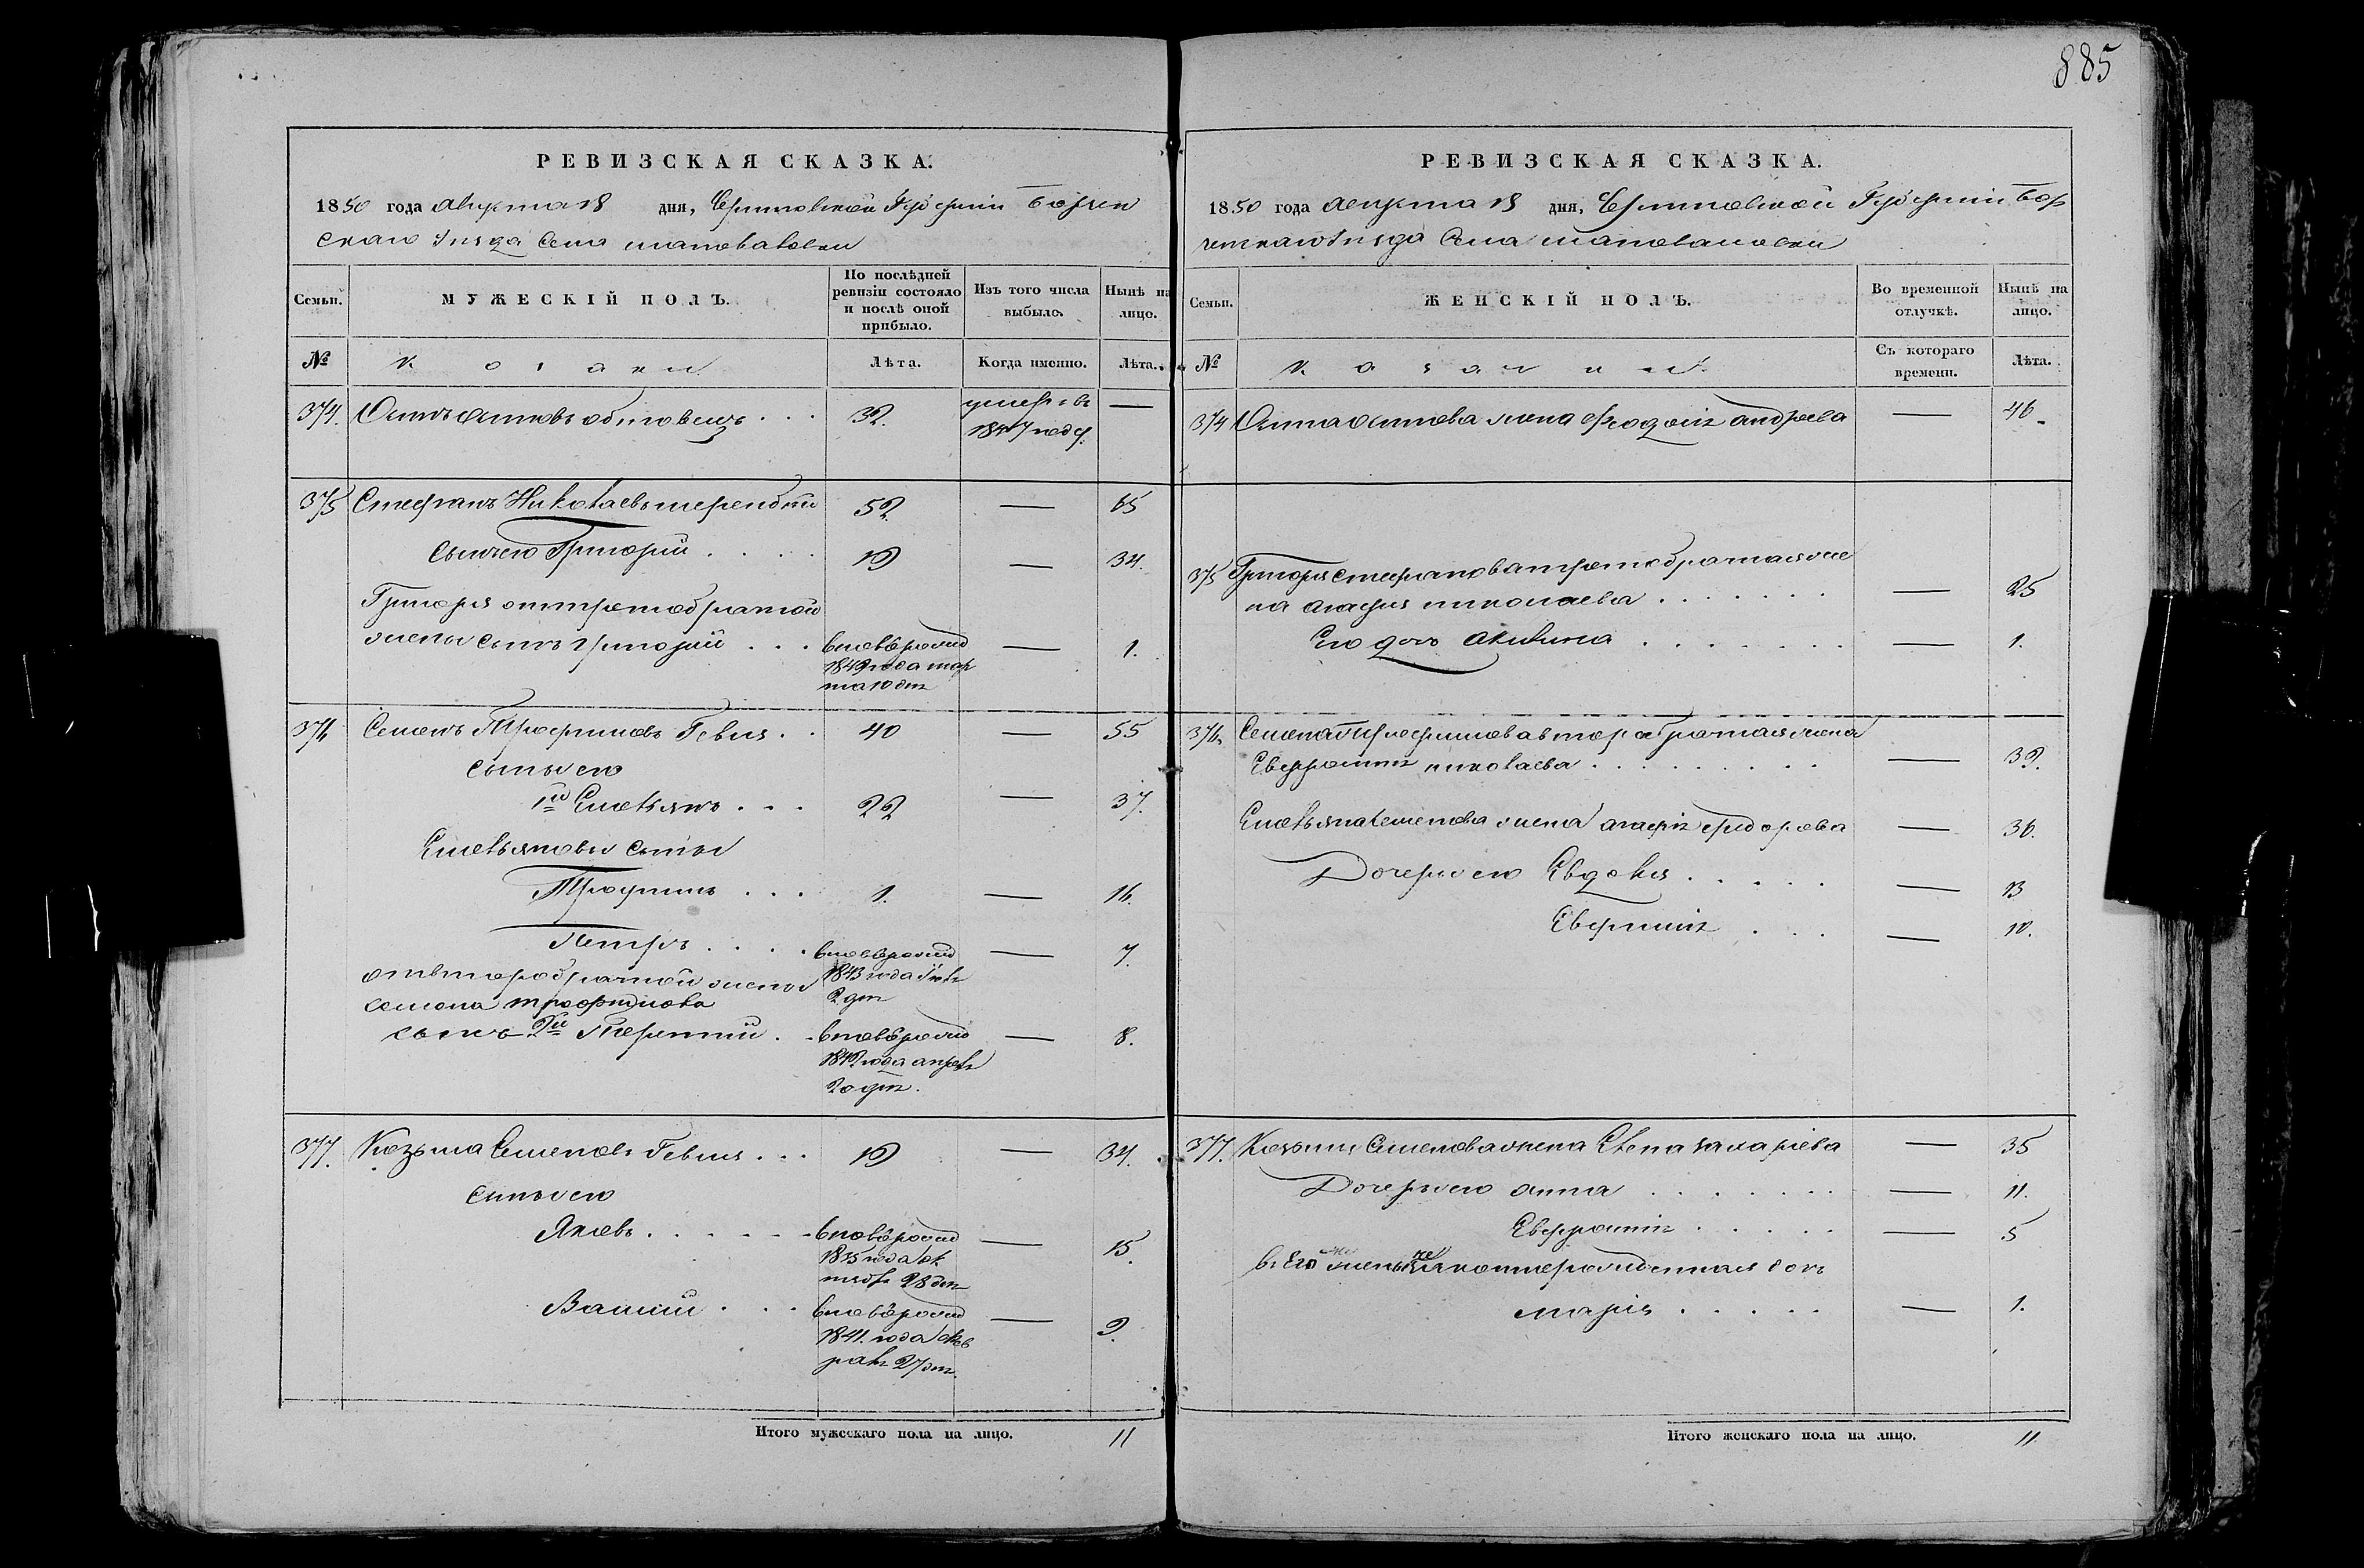 885
РЕВИЗСКАЯ СКАЗКА.
1850 года августа 18 дня, Черниговской Губернии Борзен
скаго Уезда Села
Семьи. МУЖЕСКІЙ ПОЛЪ. По послѣдней ревизіи состояло и послѣ оной прибыло. Изъ того числа выбыло. Нынѣ на лицо.
№ Козаки Лѣта. Когда именно. Лѣта.
374. 32. умеръ въ —
1847 году.
375 Стефанъ Николаевъ 52. — 65
сынъ его Григорій . . . . 19 — 34.
Григорія отъ третобрачной
жены сынъ Григорій . . . вновь рожд — 1.
1849 года мар
та 10 дня
376 Семенъ Трофимовъ Гевля . . 40 — 55
сыны его
1й Емельянъ . . . 22 — 37.
Емельяновы сыны
Трофимъ . . . 1. — 16.
Петръ . . . . вновь рожд — 7.
1843 года
2 дня
отъ второбрачной жены
Семена Трофимова
сынъ 2й Терентій . вновь рожд — 8.
1842 года апреля
20 дня.
377. Козьма Семеновъ Гевля . . . 19 — 34.
сыны его
Яковъ . . . . . . вновь рожд — 15.
1835 года ок
тября 28 дня
Василій . . . вновь рожд — 9.
1841. года фев
раля 27 дня.
Итого мужескаго пола на лицо. 11
РЕВИЗСКАЯ СКАЗКА.
1850 года августа 18 дня, Черниговской Губерніи Бор
зенскаго Уезда Села
Семьи. ЖЕНСКІЙ ПОЛЪ. Во временной отлучкѣ. Нынѣ на лицо.
№ Козачки Съ котораго времени. Лѣта.
374 жена Андреева — 46
375 Григорія Стефанова третобрачная же
на Агафія Николаева . . . . . . . — 25
Его дочь Акилина . . . . . . . — 1.
376. Семена Трофимова второбрачная жена
Евфросинія Николаева . . . . . . . . . — 39.
Емельяна Семенова жена Агафія Федорова — 36.
Дочери его Евдокія . . . . . — 13
Евфимія . . . — 10.
377. Козьмы Семенова жена Елена Захаріева — 35
Дочери его Анна . . . . . . . — 11.
Евфросинія . . . . . — 5
дочь
Марія . . . . . — 1.
Итого женскаго пола на лицо. 11